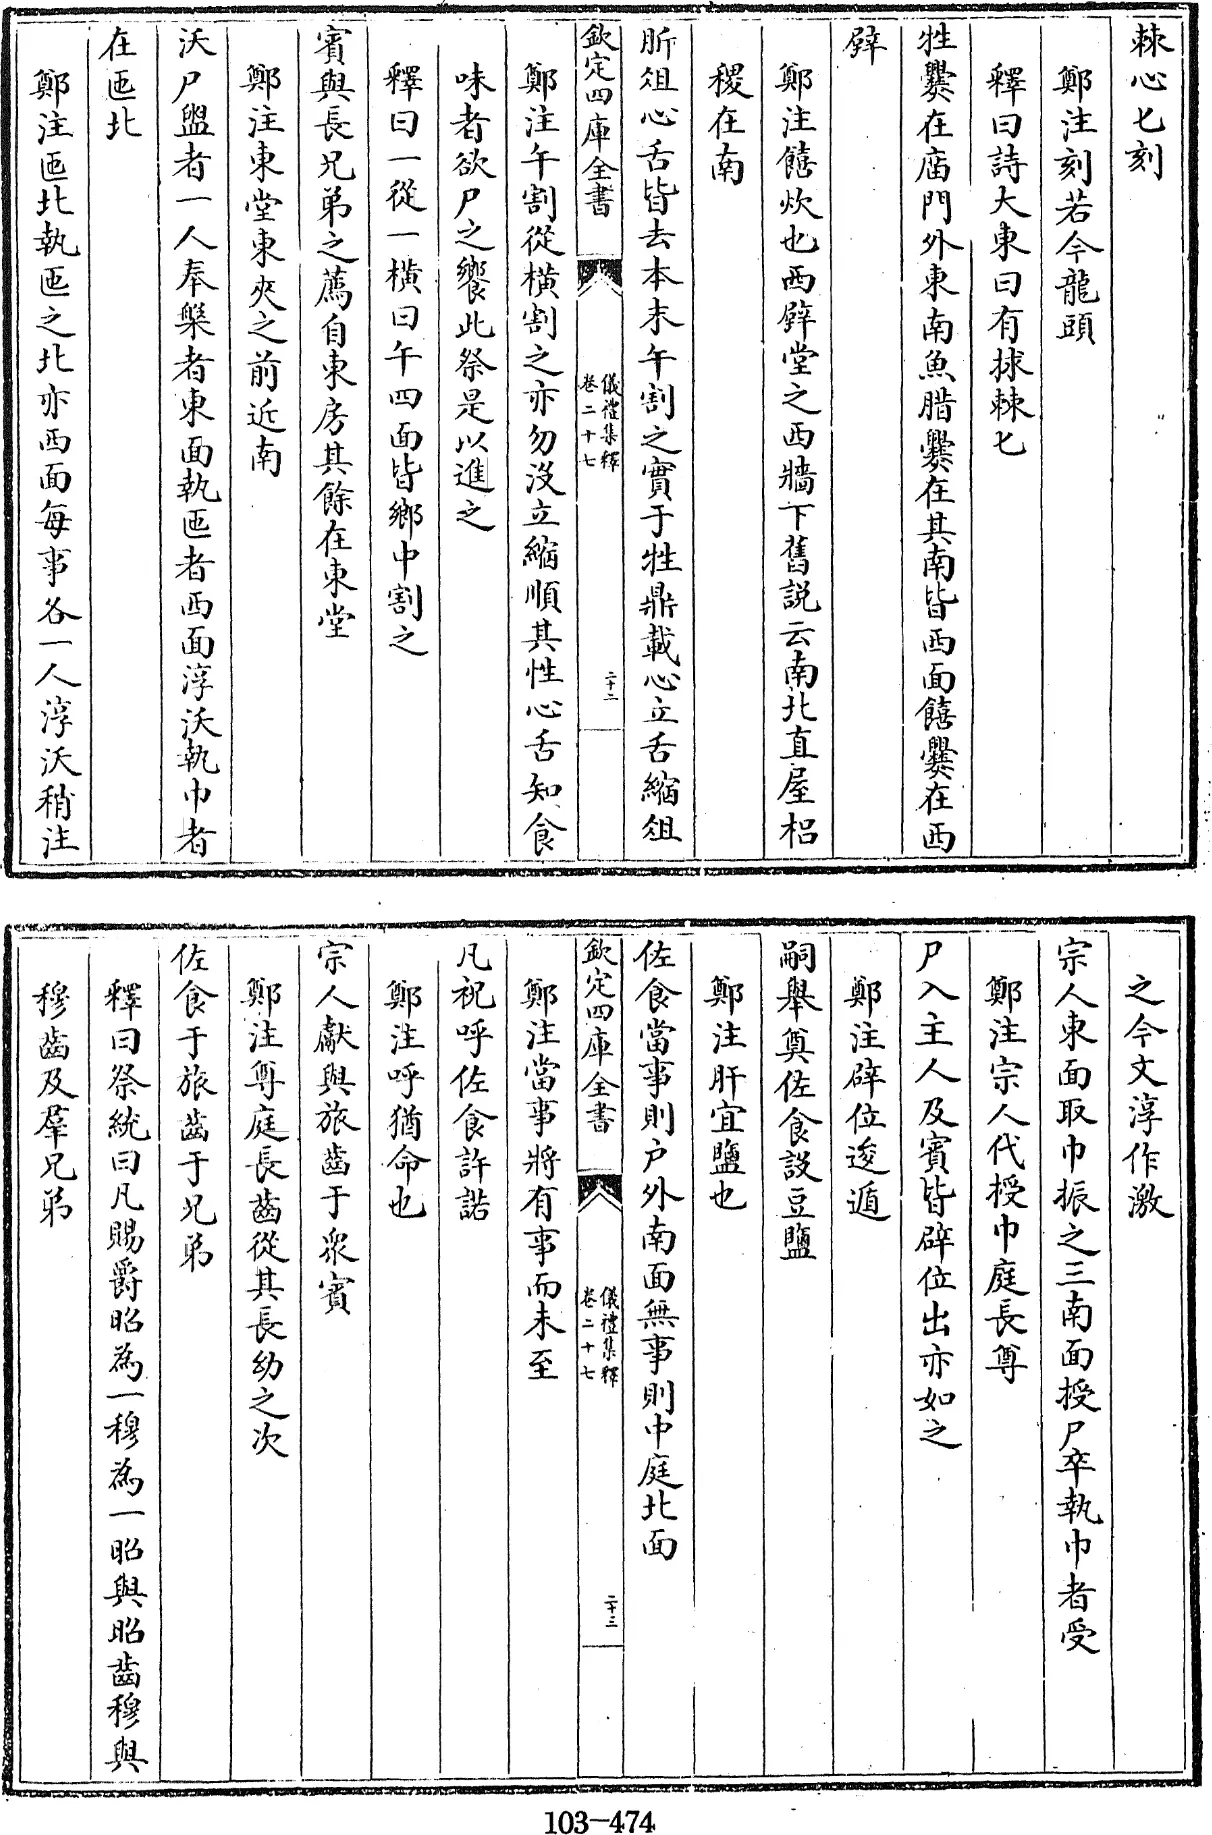 棘心匕刻
鄭注刻若今龍頭
釋曰詩大東曰有捄棘匕
牲爨在庙門外東南魚腊爨在其南皆西面饎爨在西
壁
鄭注饎炊也西壁堂之西牆下舊説云南北直屋梠
稷在南
肵俎心舌皆去本末午割之實于牲鼎載心立舌縮俎
欽定四庫全書
儀禮集釋
卷二十七
二十二
鄭注午割從橫割之亦勿沒立縮順其性心舌知食
味者欲尸之饗此祭是以進之
釋曰一從一橫曰午四面皆鄉中割之
賓與長兄弟之薦自東房其餘在東堂
鄭注東堂東夾之前近南
沃尸盥者一人奉槃者東面執匜者西面淳沃執巾者
在匜北
鄭注匜北執匜之北亦西面每事各一人淳沃稍注
之今文淳作激
宗人東面取巾振之三南面授尸卒執巾者受
鄭注宗人代授巾庭長尊
尸入主人及賓皆辟位出亦如之
鄭注辟位逡遁
嗣舉奠佐食設豆鹽
鄭注肝宜鹽也
佐食當事則户外南面無事則中庭北面
欽定四庫全書
儀禮集釋
卷二十七
二十三
鄭注當事將有事而未至
凡祝呼佐食許諾
鄭注呼猶命也
宗人獻與旅齒于衆賓
鄭注尊庭長齒從其長幼之次
佐食于旅齒于兄弟
釋曰祭統曰凡賜爵昭為一穆為一昭與昭齒穆與
穆齒及羣兄弟
103-474